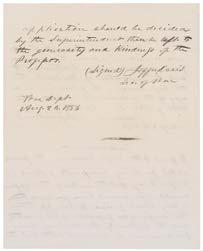 application should be decided
by the Superintendent than be left to
the generosity and kindness of the
Professor.
(Signed) Jeffn Davis
Sec of War
War Dept
Aug. 26. 1853